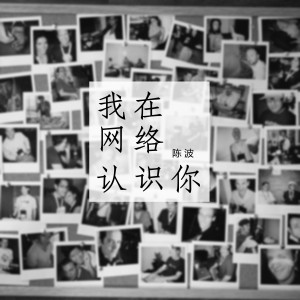 我在
网络
陈波
认识你